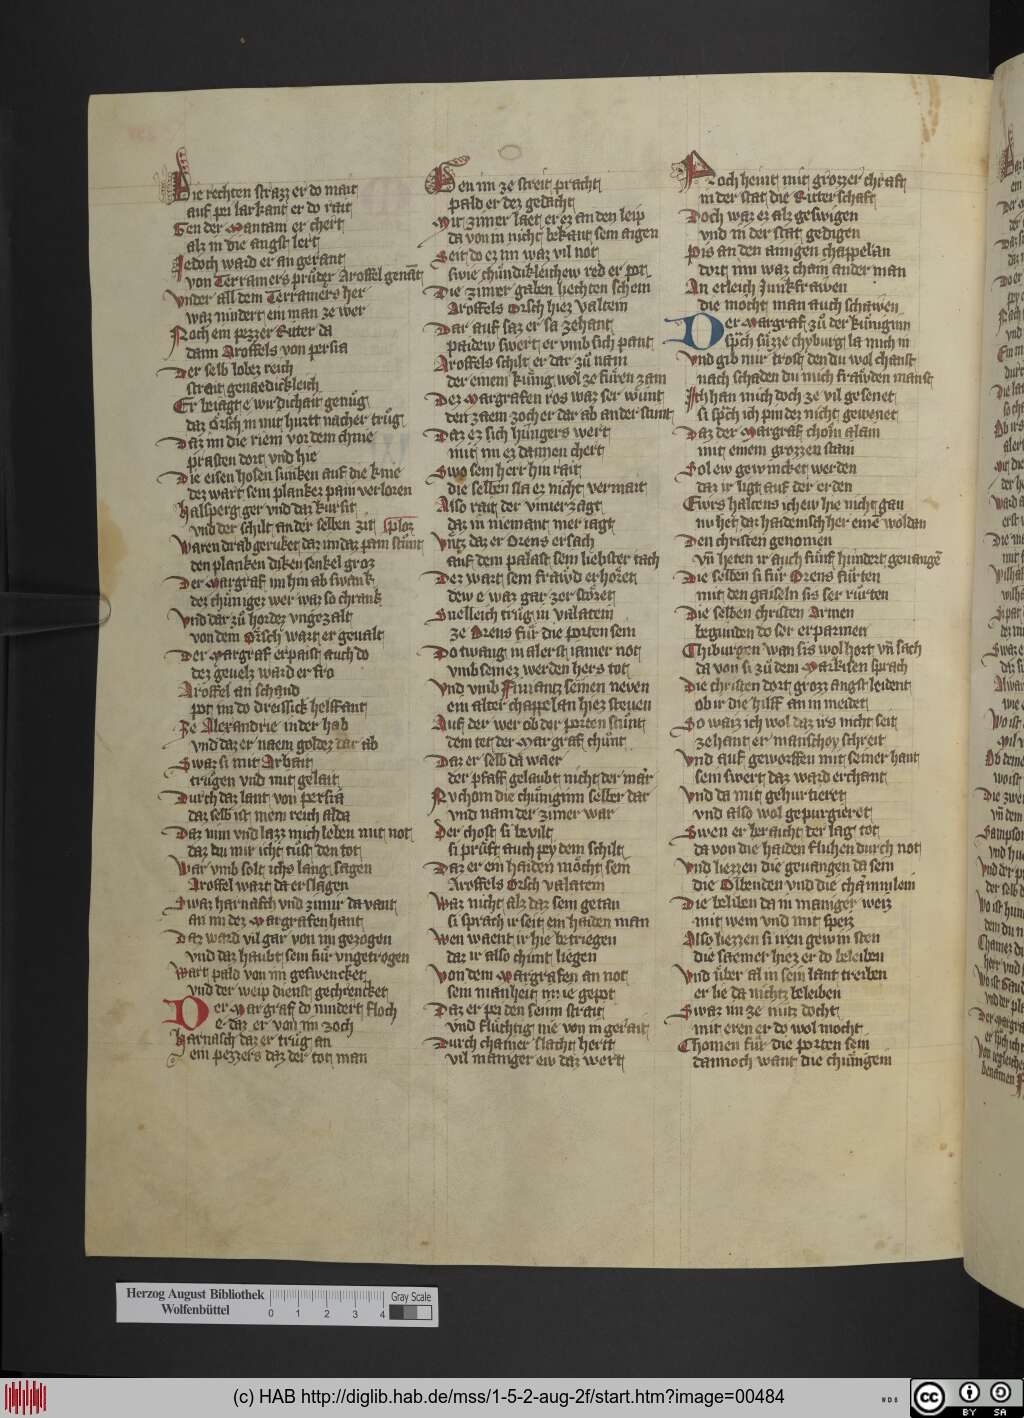 Die rechten strazz er do mait
auf per larkant er do rait
Gen der Mantam er chert
alz in die angst lert
Jedoch ward er an gerant
von Terramers pruder Aroffel genant
Vnder all dem Terramers her
waz nindert ein man ze wer
Noch ein pezzer Ritter da
dann Aroffels von persia
Der selb lobez reich
strait genaedickleich
Er beiagt e wirdichait genug
daz Orsch in mit hurtt nacher trug
Daz im die riem vor dem chnie
prasten dort vnd hie
Die eisen hosen sunken auf die knie
dez wart sein planker pain verloren
halsperg ger vnd daz kursit
vnd der schilt an der selben zit sploz
Waren drab geruket daz im daz pain stunt
den planken diken senkel groz
Der Margraf im hin ab swank
dez chunigez wer waz so chrank
Vnd dar zu hordez vngezalt
von dem Orsch wart er geualt
Der Margraf erpaist auch do
dez geuelz ward er fro
Aroffel an schand
pot im do dreissick helffant
Ze Alexandrie in der hab
vnd daz er naem goldez dar ab
Swaz si mit Arbait
trugen vnd mit gelait
Durch daz lant von persia
daz selb ist mein reich alda
Daz nim vnd lazz mich leben mit not
daz du mir icht tust den tot
War vmb solt ichs lang sagen
Aroffel wart da erslagen
Swaz harnasch vnd zimir da vant
an im dez Margrafen hant
Daz ward vil gar von im gezogen
vnd daz haubt sein fur vngetrogen
Wart pald von im geswencket
vnd der weip dienst gechrencket
Der Margraf do nindert floch
e daz er von im zoch
Harnasch daz er trug an
ein pezzers daz der tot man
Gen im ze streit pracht
pald er dez gedacht
Mit zimer laet er ez an den leip
da von in nicht bekant sein aigen
Seit do ez im waz vil not
swie chundikleichew red er pot
Die zimer gaben liechten schein
Aroffels Orsch hiez valtein
Dar auf saz er sa zehant
paidew swert er vmb sich pant
Aroffels schilt er dar zu nam
der einem kunig wol ze furen zam
Dez Margrafen ros waz ser wunt
den zaem zoch er dar ab ander stunt
Daz ez sich hungers wert
mit im ez dannen chert
Swo sein herr hin rait
die selben sla ez nicht vermait
Also rait der vnuerzagt
daz in niemant mer iagt
Vntz daz er Orens ersach
auf dem palast sein liebster tach
Dez wart sein frawd erhohet
dew e waz gar zerstoret
Snelleich trug in valatein
ze Orens fur die porten sein
Do twang in alerst iamer not
vmb seinez werden hers tot
Vnd vmb Fiuiantz seinen neven
ein alter chappelan hiez steuen
Auf der wer ob der porten stunt
dem tet der Margraf chunt
Daz er selb da waer
der pfaff gelaubt nicht der maer
Nv chom die chuniginn selber dar
vnd nam der zimer war
Der chost si bevilt
si pruft auch pey dem schilt
Daz er ein haiden mocht sein
Aroffels Orsch valatein
Waz nicht alz daz sein getan
si sprach ir seit ein haiden man
Wen waent ir hie betriegen
daz ir also chunt liegen
Von dem Margrafen an not
sein manheit im ie gepot
Daz er pey den seinn strait
vnd fluchtig nie von in gerait
Durch chainer slacht hertt
vil maniger ew daz wert
Noch heint mit grozzer chraft
in der stat die Ritterschaft
Doch waz ez alz geswigen
vnd in der stat gedigen
Pis an den ainigen chappelan
dort inn waz chain ander man
An erleich Junkfrawen
die mocht man auch schawen
Der Margraf zu der kuniginn
sprach suzze chyburg la mich in
Vnd gib mir trost den du wol chanst
nach schaden du mich frawden manst
Ich han mich doch ze vil gesenet
si sprach ich pin dez nicht gewenet
Daz der Margraf chom alain
mit einem grozzen stain
Sol ew gewincket werden
daz ir ligt auf der erden
Ewrs haltens ich ew hie nicht gan
nv het daz haidemisch her eine woldan
Den christen genomen
vnd heten ir auch funf hundert geuangen
Die selben si fur Orens furten
mit den gaiseln sis ser rurten
Die selben christen Armen
begunden do ser erparmen
Chiburgen wan sis wol hort vnd sach
da von si zu dem Markisen sprach
Die christen dort grozz angst leident
ob ir die hilff an in meidet
So waiz ich wol daz irs nicht seit
zehant er manschoy schreit
Vnd auf geworffen mit seiner hant
sein swert daz ward erchant
Vnd da mit gehurtieret
vnd also wol gepungieret
Swen er beraicht der lag tot
da von die haiden fluhen durch not
Vnd liezzen die geuangen da sein
die Olbenden vnd die chammulein
Die beliben da in maniger weiz
mit wein vnd mit speiz
Also liezzen si iren gewin sten
die saemer hiez er do beleiben
Vnd uber al in sein lant treiben
er lie da nichtz beleiben
Swaz im ze nutz docht
mit eren er do wol mocht
Chomen fur die porten sein
dannoch want die chunigein
Herzog August Bibliothek
Wolfenbüttel
0 1 2 3 4
Gray Scale
(c) HAB http://diglib.hab.de/mss/1-5-2-aug-2f/start.htm?image=00484
WDB
cc
BY SA